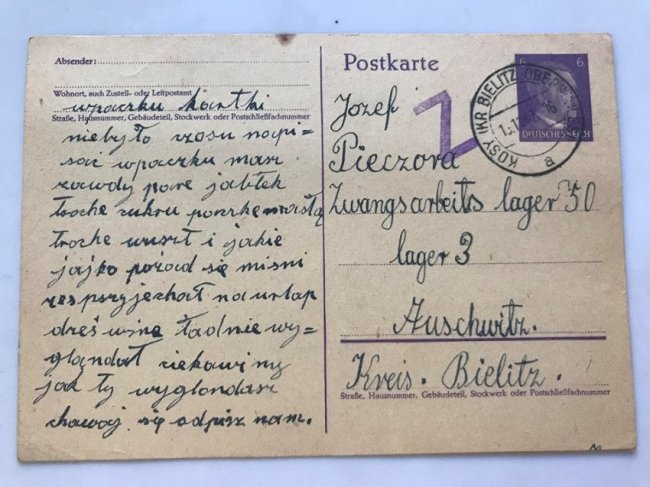 Absender:
Wohnort, auch Zustell- oder Leitpostamt
wpaczku kartki
Straße, Hausnummer, Gebäudeteil, Stockwerk oder Postschließfachnummer
niebyło czosu nopi=
sać wpaczku masz
zawdy pore jabłek
troche cukru masła
troche wuszt i jakie
jajko się
przyjechoł na urlap
ładnie wy=
glondoł ciekawi my
jak ty wyglondasz
chowej się odpisz nam.
Postkarte
6 6
DEUTSCHES REICH
KOSY (KR BIELITZ, OBER
a
Z
Jozef
Pieczora
Zwangsarbeits lager 50
lager 3
Auschwitz.
Kreis. Bielitz.
Straße, Hausnummer, Gebäudeteil, Stockwerk oder Postschließfachnummer